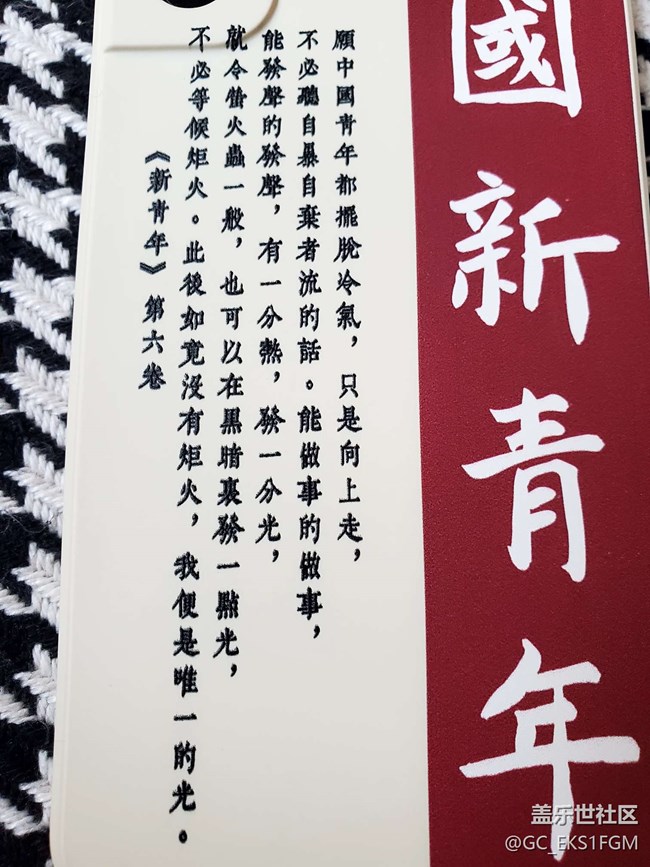 國新青年
願中國青年都擺脫冷氣，只是向上走，
不必聽自暴自棄者流的話。能做事的做事，
能發聲的發聲，有一分熱，發一分光，
就令螢火蟲一般，也可以在黑暗裏發一點光，
不必等候炬火。此後如竟沒有炬火，我便是唯一的光。
《新青年》第六卷
盖乐世社区
@GC_EKS1FGM